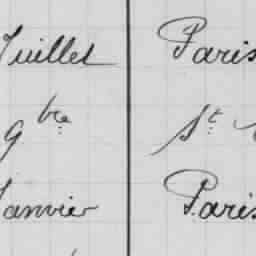 Juillet Paris
9bre St
Janvier Paris